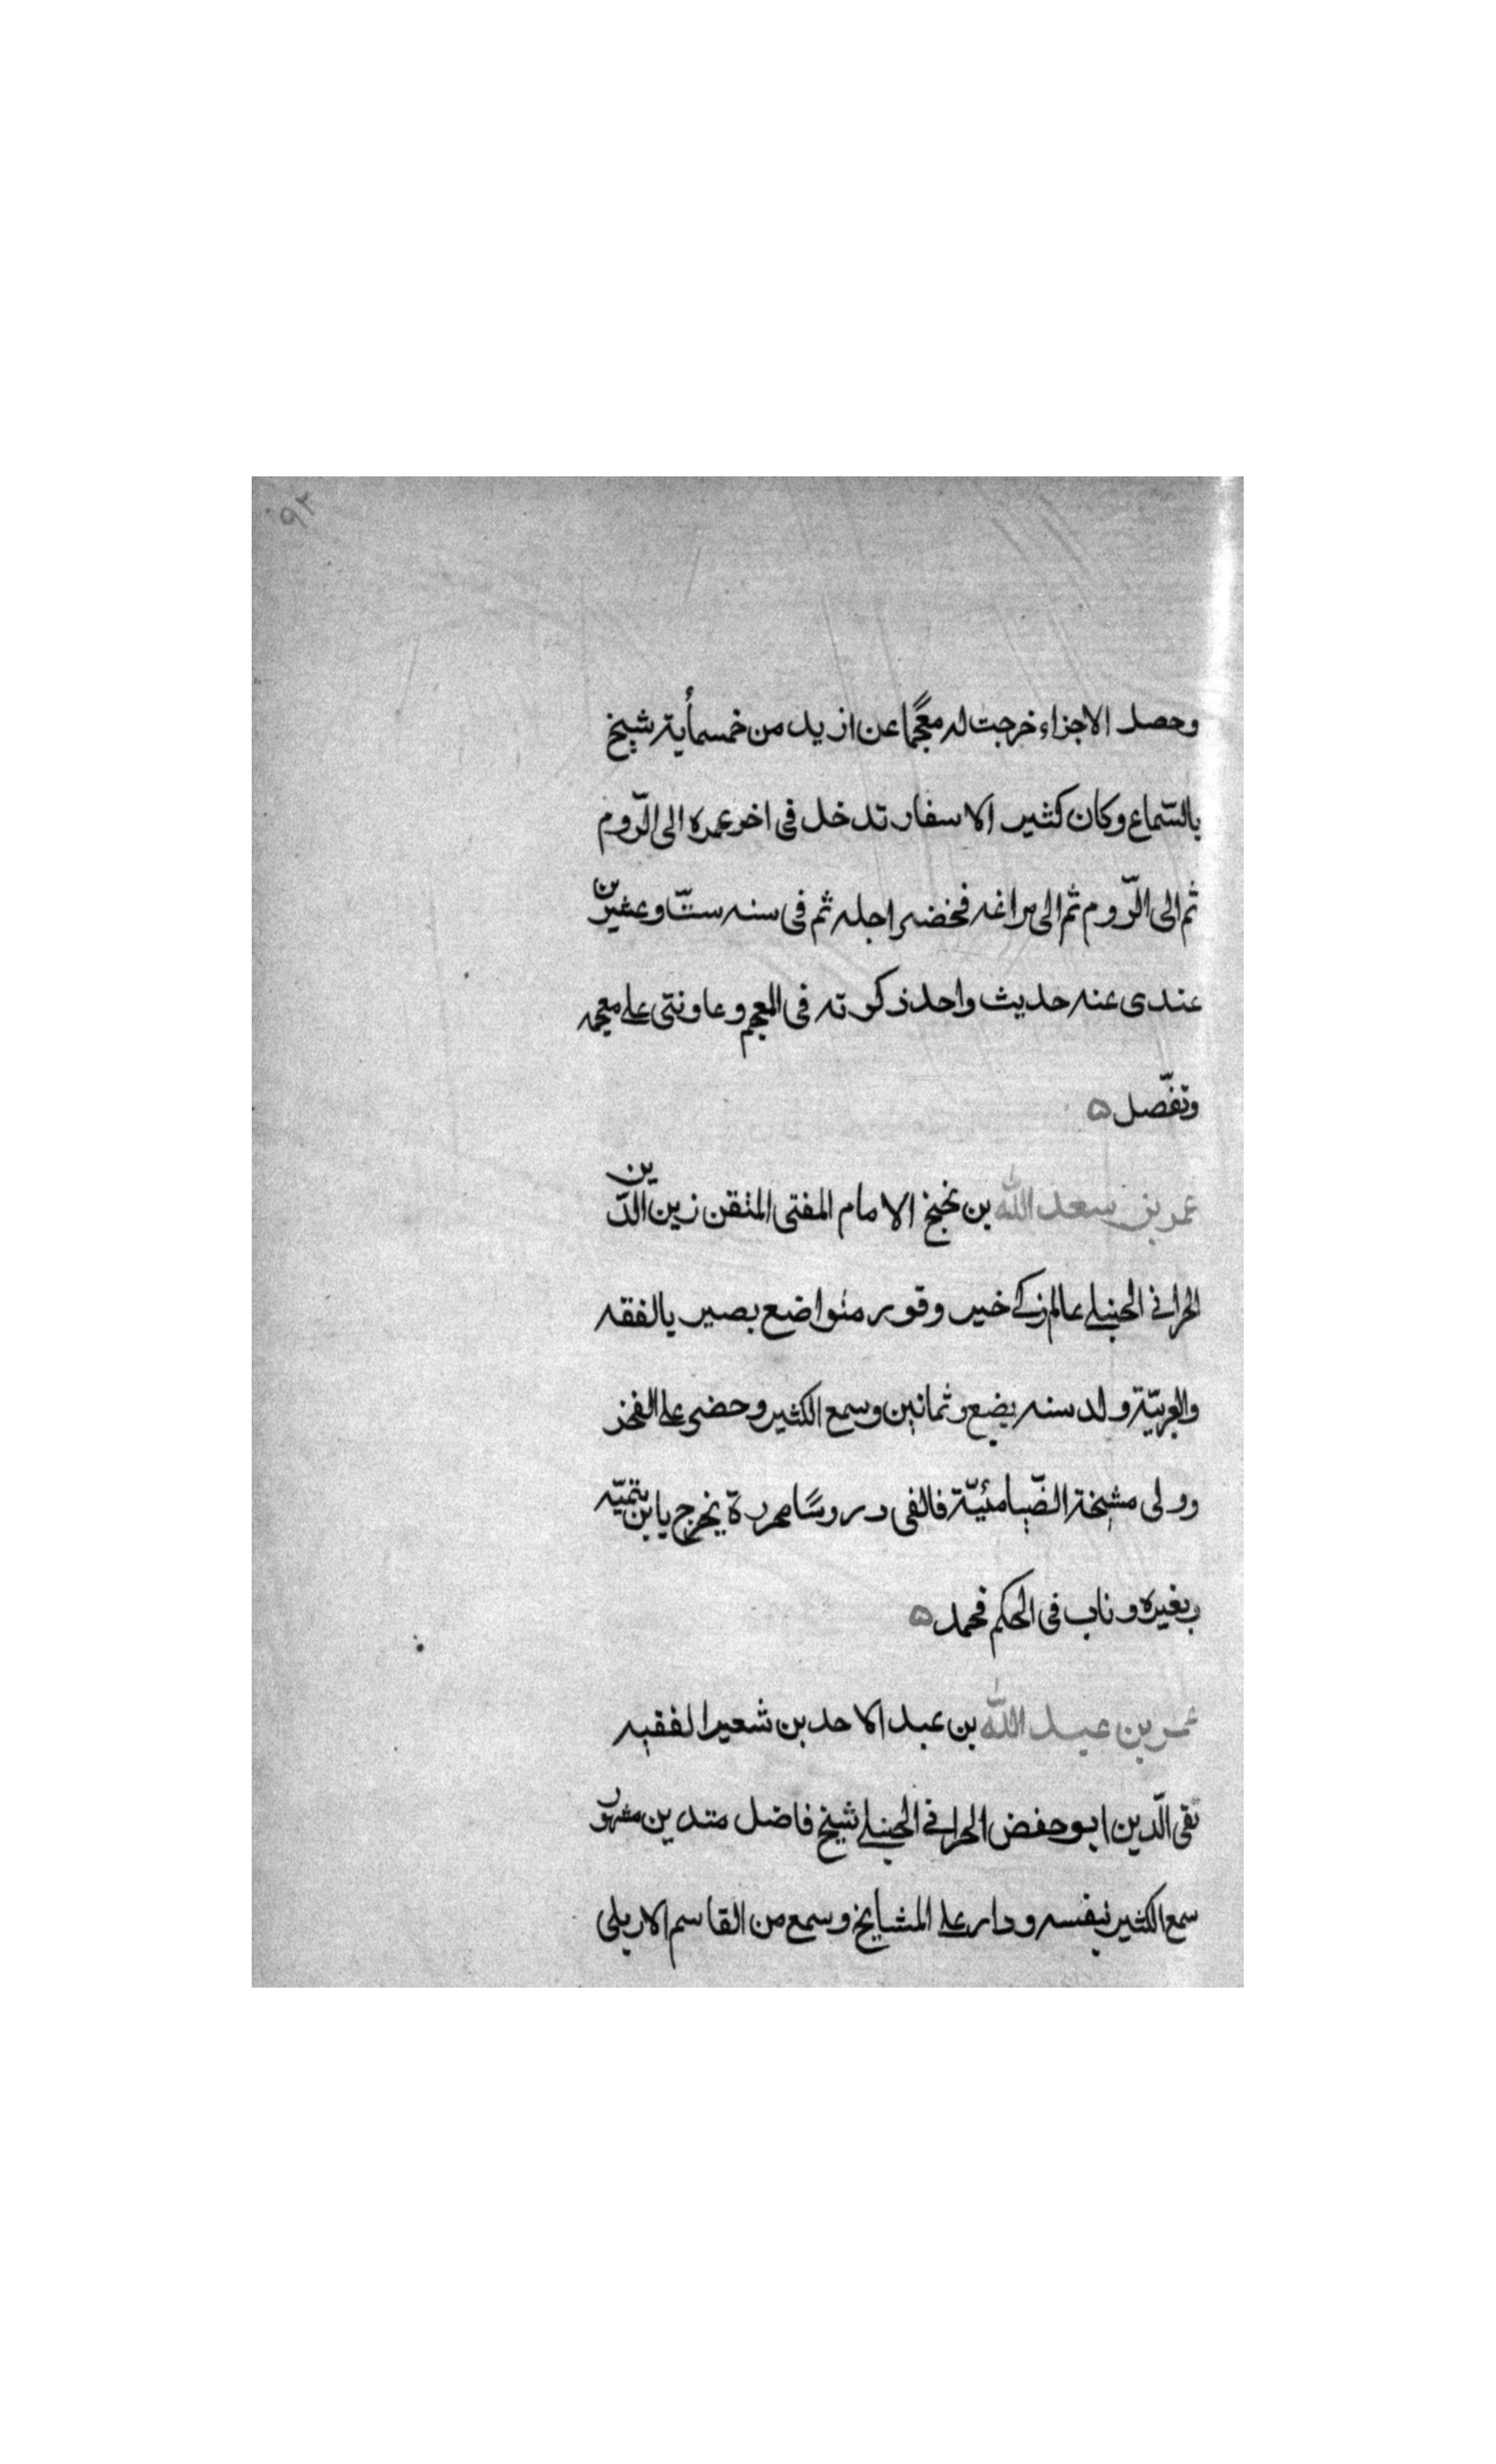 ٩٢
وحصل الاجزاء خرجت له معجًما عن ازيد من خمسمأية شيخ
بالسّماع وكان كثير الاسفار تدخل فى اخر عمره الى الرّوم
ثم الى الرّوم ثم الى مراغه فحضر اجله ثم فى سنه ستّ وعشرين
عندى عنه حديث واحد ذكرته فى المعجم وعاونتى على معجمه
وتفّصل ه
عمر بن سعد الله بن نجيح الامام المفتى المتقن زين الدّين
الحرانى الحنبلى عالم زكى خير وقور متواضع بصير بالفقه
والعربيّة ولد سنه بضع وثمانين وسمع الكثير وحضى على الفخر
وولى مشيخة الضّيامئيّة فالفى دروسًا محررة يخرج يابن يتميّه
بغيره وناب فى الحكم فحمد ه
عمر بن عبد الله بن عبد الاحد بن شعير الفقيه
تقى الّدين ابو حفض الحرانى الحنبلى شيخ فاضل متدين مشهور
سمع الكثير بنفسه ودار على المشايخ وسمع من القاسم الاربلى